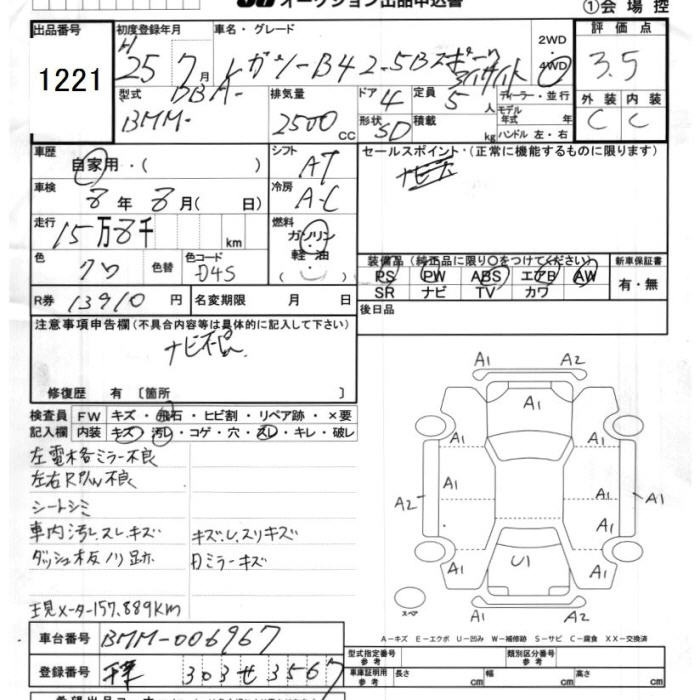 オークション出品申込書
①会場控
出品番号
1221
初度登録年月
H 25 7月
車名・グレード
レガシーB4 2.5Bスポーツ
アイサイト
2WD
4WD
評価点
3.5
外装 内装
C C
型式
DBA-
BMM-
排気量
2500 cc
ドア 4
形状 SD
定員 5人
積載 kg
ディーラー・並行
モデル年式 年
ハンドル 左・右
車歴
自家用・( )
シフト
AT
セールスポイント・(正常に機能するものに限ります)
車検
8年8月( 日)
冷房
A-C
走行
15万8千 km
燃料
ガソリン
軽・油
( )
色
クロ
色替
色コード
D4S
装備品(純正品に限り○をつけてください)
PS PW ABS エアB AW
SR ナビ TV カワ
新車保証書
有・無
R券 13910円
名変期限 月 日
後日品
注意事項申告欄(不具合内容等は具体的に記入して下さい)
ナビ不良
修復歴 有 〔箇所 〕
検査員記入欄
FW キズ・飛石・ヒビ割・リペア跡・×要
内装 キズ・汚レ・コゲ・穴・スレ・キレ・破レ
左電格ミラー不良
左右RP/W不良
シートシミ
車内汚レスレキズ
キズ、U、スリキズ
ダッシュ板ノリ跡
Dミラーキズ
現メーター157,889km
A1 A2
A1
A1 A1
A2 A1 A1 A1
A1 U1 A1
A1 A2
スペア
A-キズ E-エクボ U-凹み W-補修跡 S-サビ C-腐食 XX-交換済
車台番号 BMM-006967
登録番号 303せ3567
型式指定番号 参考
類別区分番号 参考
車庫証明用 参考
長さ cm 幅 cm 高さ cm
希望出品コーナー